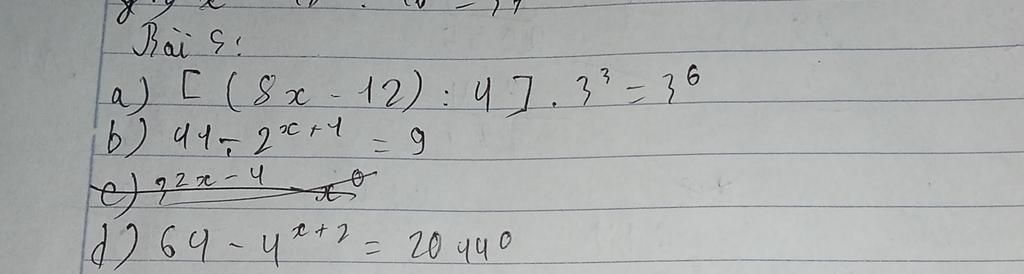 Bài 5:
a) [ (8x - 12) : 4 ] . 3³ = 3⁶
b) 41 - 2ˣ⁺¹ = 9
c) 3²ˣ⁻⁴ x⁰
d) 64 - 4ˣ⁺² = 20 440